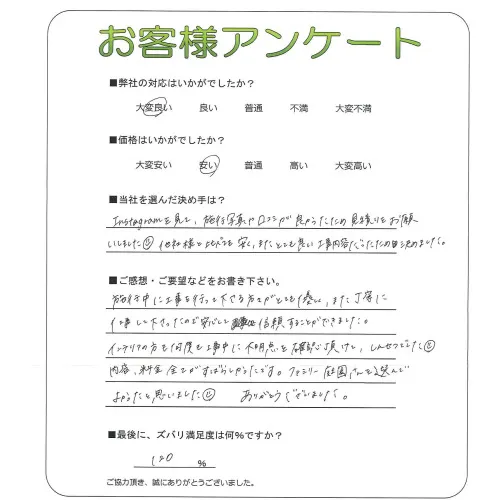 お客様アンケート
■弊社の対応はいかがでしたか？
大変良い 良い 普通 不満 大変不満
■価格はいかがでしたか？
大変安い 安い 普通 高い 大変高い
■当社を選んだ決め手は？
Instagramを見て、施行写真や口コミが良かったため見積りをお願
いしました☺ 他社様と比べても安く、またとても良い工事内容だったため決めました。
■ご感想・ご要望などをお書き下さい。
施行中に工事を行って下さる方々がとても優しく、また丁寧に
仕事して下さったので安心して信頼することができました。
インテリアの方も何度も工事中に不明点を確認頂けて、しんせつでした☺
内容、料金全てがすばらしかったです。ファミリー庭園さんを選んで
よかったと思いました☺ ありがとうございました。
■最後に、ズバリ満足度は何%ですか？
120 %
ご協力頂き、誠にありがとうございました。